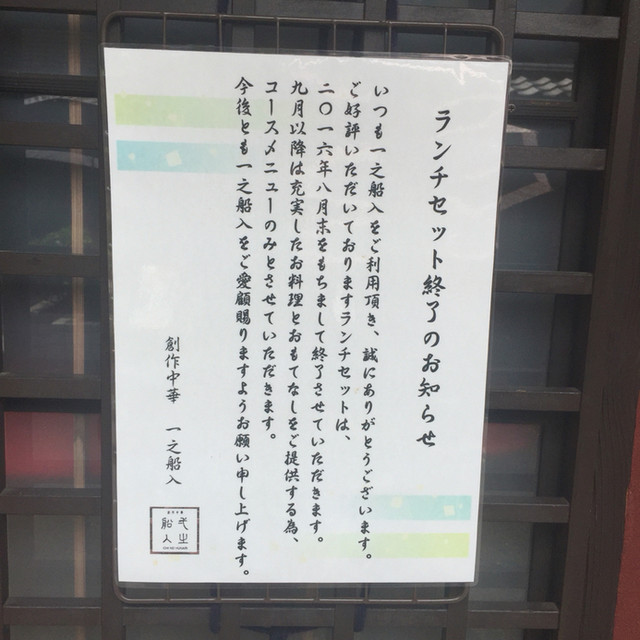 ランチセット終了のお知らせ
いつも一之船入をご利用頂き、誠にありがとうございます。
ご好評いただいておりますランチセットは、
二〇一六年八月末をもちまして終了させていただきます。
九月以降は充実したお料理とおもてなしをご提供する為、
コースメニューのみとさせていただきます。
今後とも一之船入をご愛顧賜りますようお願い申し上げます。
創作中華 一之船入
弌之
船入